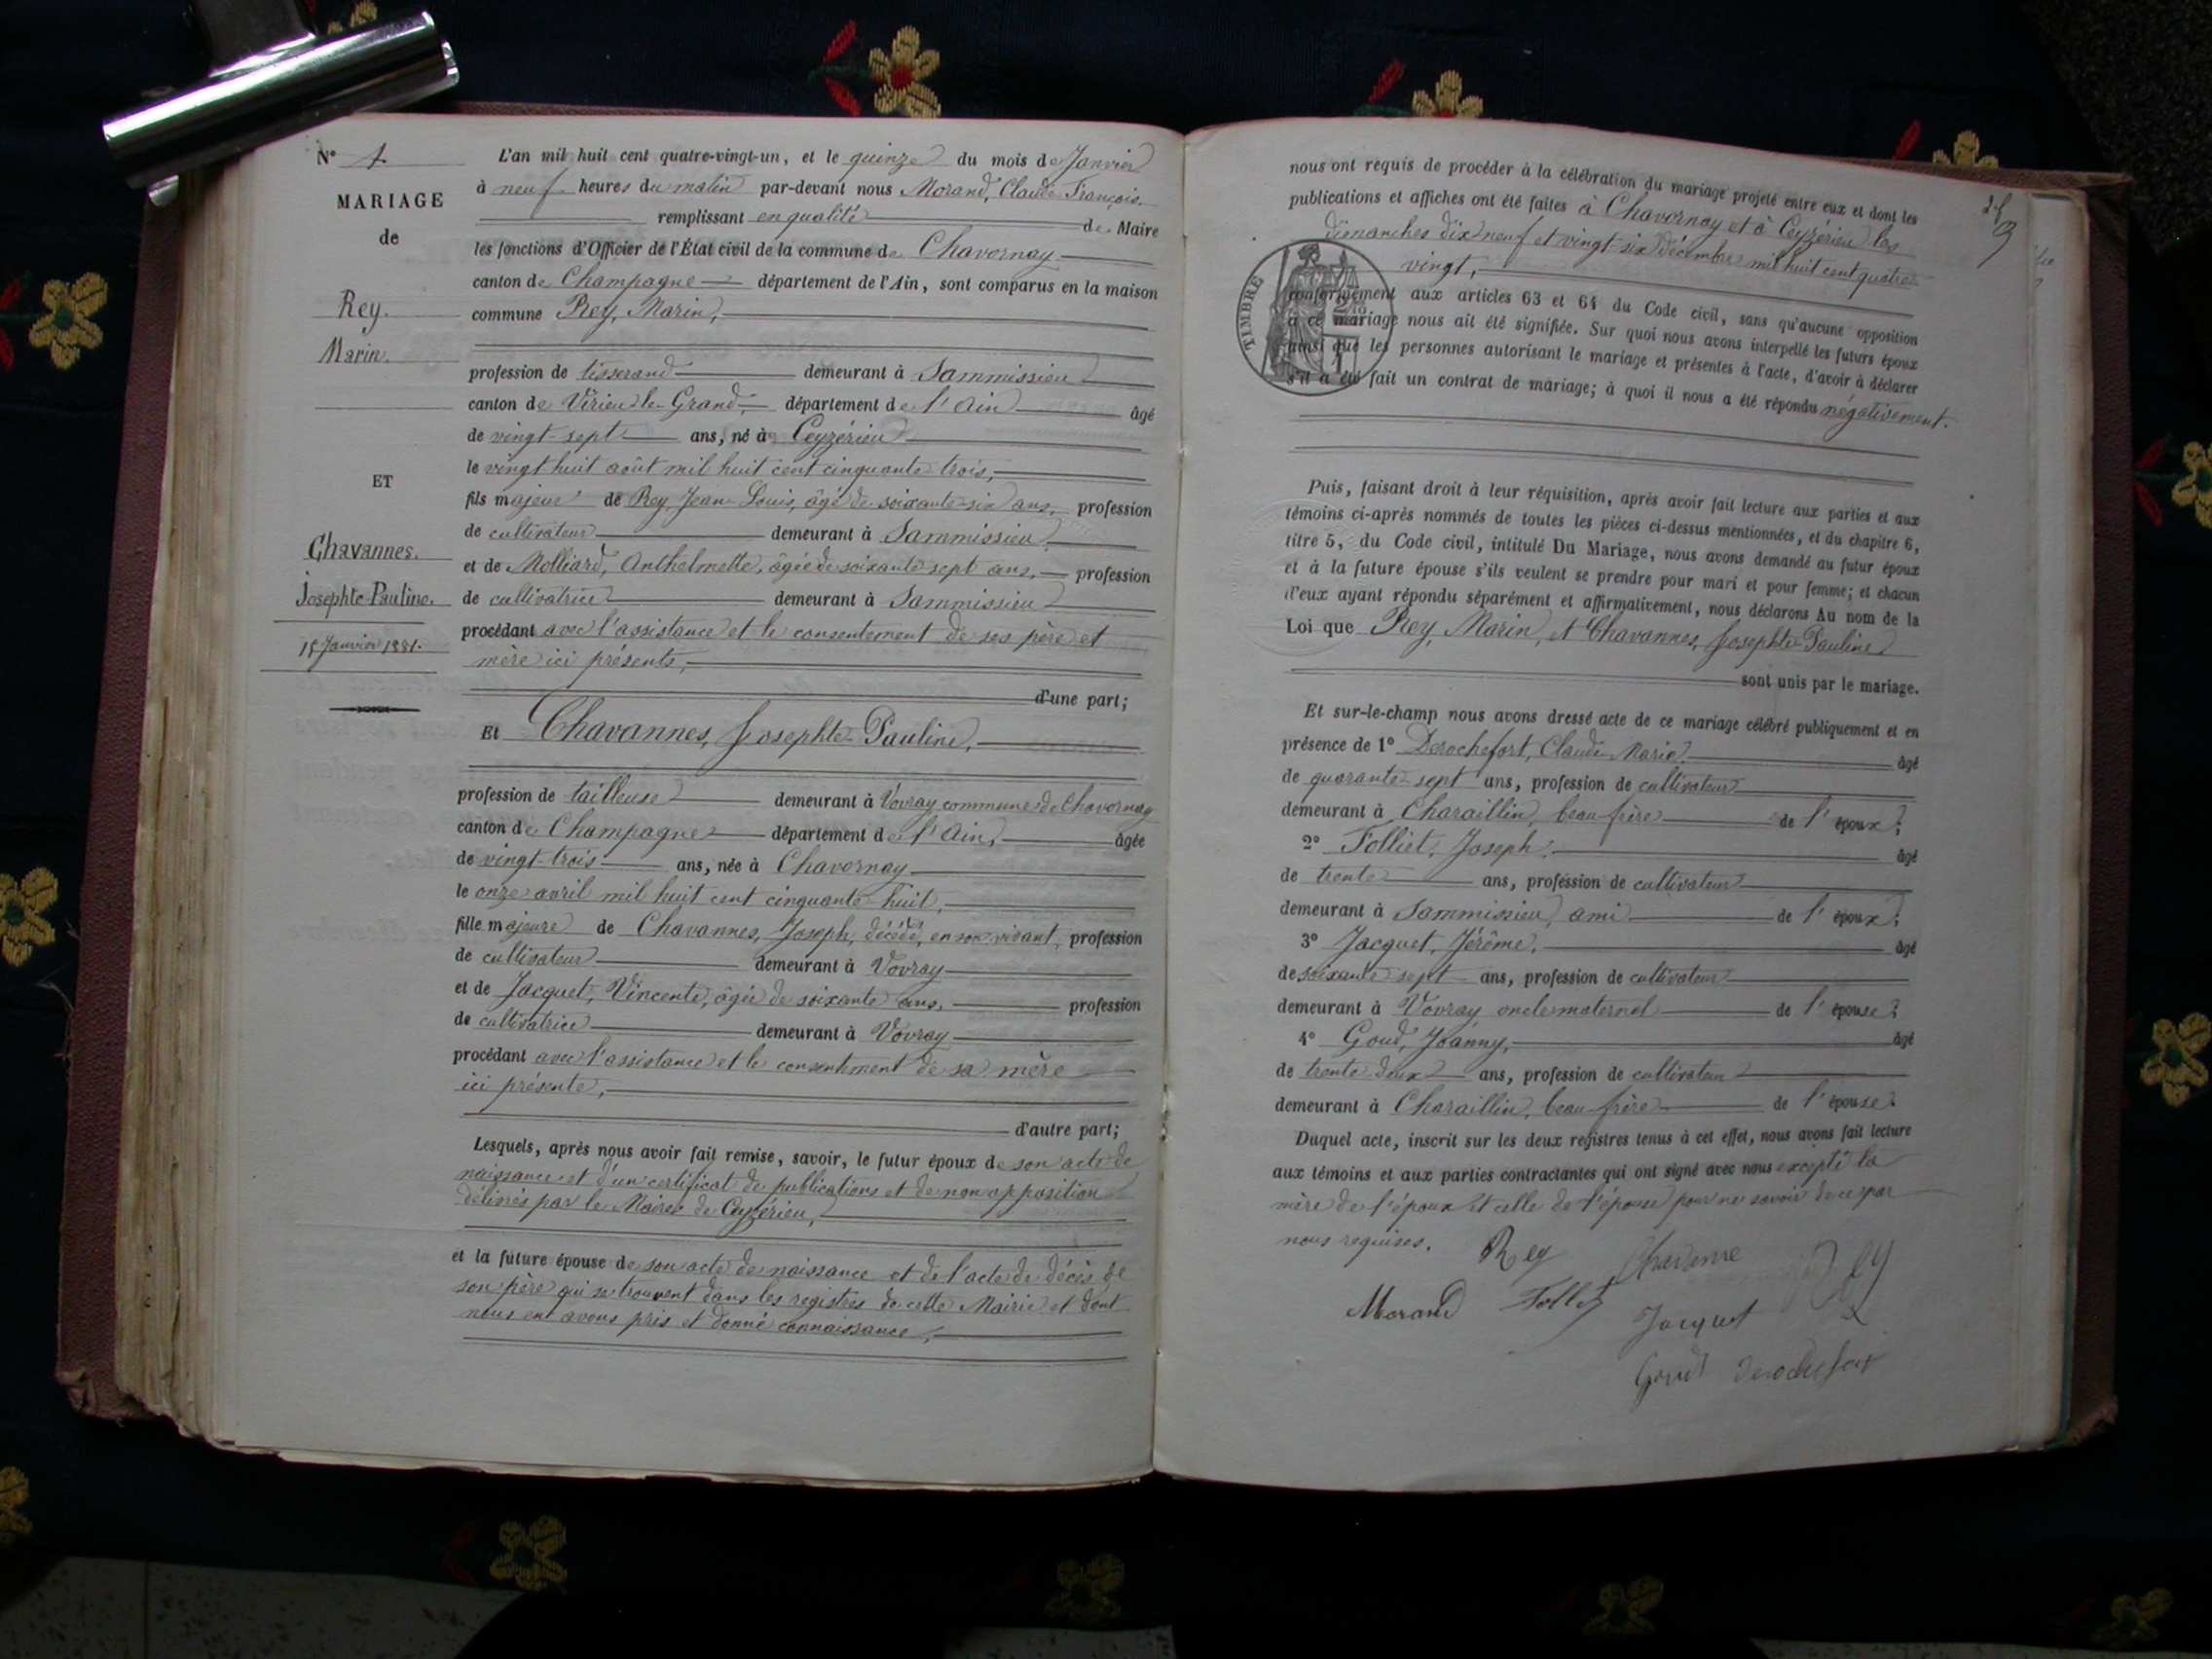 N° 1
MARIAGE
de
Rey.
Marin.
ET
Chavannes.
Josephte-Pauline.
15 Janvier 1881.
L'an mil huit cent quatre-vingt-un, et le quinze du mois de Janvier
à neuf heures du matin par-devant nous Morand, Claude François
remplissant en qualité de Maire
les fonctions d'Officier de l'État civil de la commune de Chavornay
canton de Champagne département de l'Ain, sont comparus en la maison
commune Rey, Marin,
profession de tisserand demeurant à Sammissieu
canton de Virieu-le-Grand, département de l'Ain âgé
de vingt-sept ans, né à Ceyzérieu
le vingt huit août mil huit cent cinquante trois,
fils majeur de Rey, Jean-Louis, âgé de soixante-six ans, profession
de cultivateur demeurant à Sammissieu
et de Molliard, Anthelmette, âgée de soixante sept ans, profession
de cultivatrice demeurant à Sammissieu
procédant avec l'assistance et le consentement de ses père et
mère ici présents,
d'une part;
Et Chavannes, Josephte-Pauline,
profession de tailleuse demeurant à Vovray commune de Chavornay
canton de Champagne département de l'Ain, âgée
de vingt-trois ans, née à Chavornay
le onze avril mil huit cent cinquante huit,
fille majeure de Chavannes, Joseph, décédé, en son vivant, profession
de cultivateur demeurant à Vovray
et de Jacquet, Vincente, âgée de soixante ans, profession
de cultivatrice demeurant à Vovray
procédant avec l'assistance et le consentement de sa mère
ici présente,
d'autre part;
Lesquels, après nous avoir fait remise, savoir, le futur époux de son acte de
naissance et d'un certificat de publications et de non opposition
délivrés par le Maire de Ceyzérieu,
et la future épouse de son acte de naissance et de l'acte de décès de
son père qui se trouvent dans les registres de cette Mairie et dont
nous en avons pris et donné connaissance,
nous ont requis de procéder à la célébration du mariage projeté entre eux et dont les
publications et affiches ont été faites à Chavornay et à Ceyzérieu les
dimanches dix neuf et vingt-six décembre mil huit cent quatre
vingt,
TIMBRE
conformément aux articles 63 et 64 du Code civil, sans qu'aucune opposition
à ce mariage nous ait été signifiée. Sur quoi nous avons interpellé les futurs époux
ainsi que les personnes autorisant le mariage et présentes à l'acte, d'avoir à déclarer
s'il a été fait un contrat de mariage; à quoi il nous a été répondu négativement.
Puis, faisant droit à leur réquisition, après avoir fait lecture aux parties et aux
témoins ci-après nommés de toutes les pièces ci-dessus mentionnées, et du chapitre 6,
titre 5, du Code civil, intitulé Du Mariage, nous avons demandé au futur époux
et à la future épouse s'ils veulent se prendre pour mari et pour femme; et chacun
d'eux ayant répondu séparément et affirmativement, nous déclarons Au nom de la
Loi que Rey, Marin, et Chavannes, Josephte-Pauline
sont unis par le mariage.
Et sur-le-champ nous avons dressé acte de ce mariage célébré publiquement et en
présence de 1° Derochefort, Claude-Marie, âgé
de quarante-sept ans, profession de cultivateur
demeurant à Charaillin, beau-frère de l'époux;
2° Folliet, Joseph, âgé
de trente ans, profession de cultivateur
demeurant à Sammissieu, ami de l'époux;
3° Jacquet, Jérôme, âgé
de soixante sept ans, profession de cultivateur
demeurant à Vovray oncle maternel de l'épouse;
4° Goud, Joanny, âgé
de trente-deux ans, profession de cultivateur
demeurant à Charaillin, beau-frère de l'épouse.
Duquel acte, inscrit sur les deux registres tenus à cet effet, nous avons fait lecture
aux témoins et aux parties contractantes qui ont signé avec nous excepté la
mère de l'époux et celle de l'épouse pour ne savoir de ce par
nous requises.
Rey Chavanne Rey
Morand Folliet Jacquet
Goud Derochefort